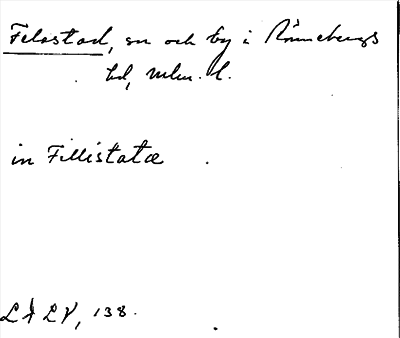 Felestad, sn och by i Rönnebergs
hd, Mlm. l.
in Fillistatæ
L Å L V, 138.